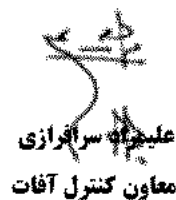 علیمراد سرافرازی
معاون کنترل آفات